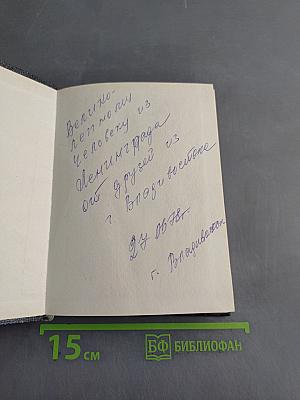 Велико-
лепному
Человеку из
Ленинграда
от друзей из
г Владивостока
27 06 78г.
г. Владивосток
15 см
БФ БИБЛИОФАН